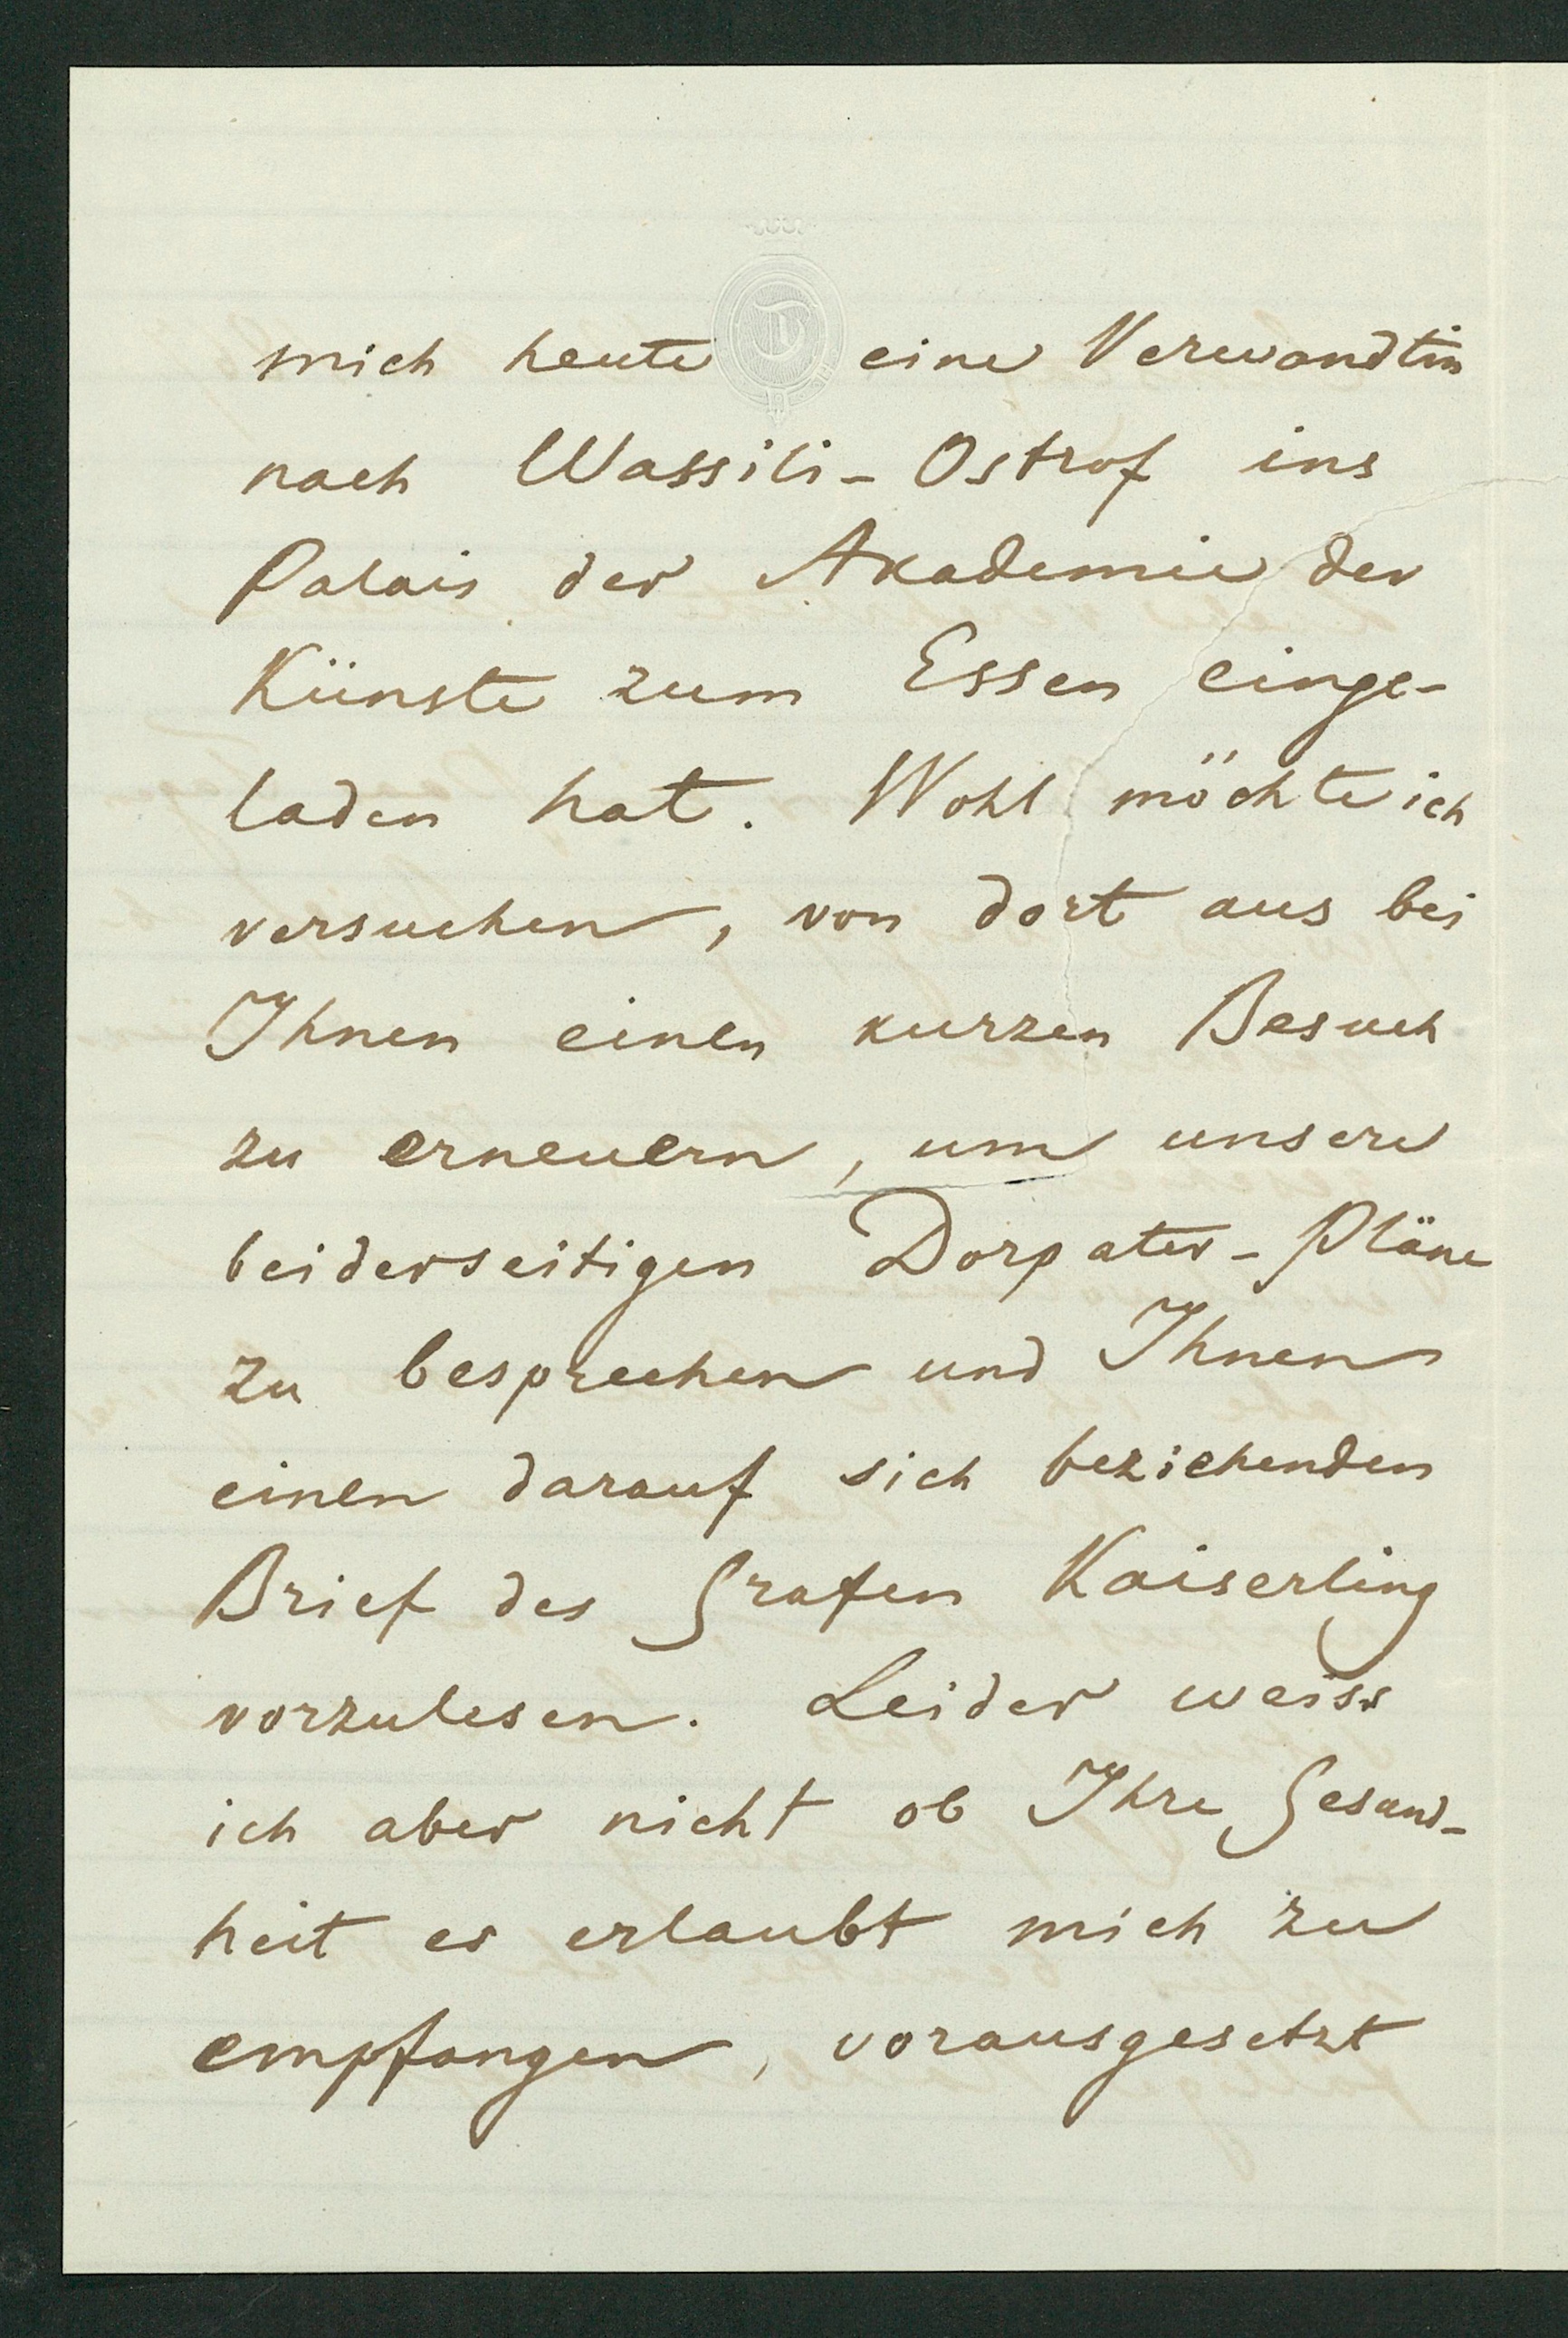 mich heute eine Verwandtin
nach Wassili-Ostrof ins
Palais der Akademie der
Künste zum Essen einge-
laden hat. Wohl möchte ich
versuchen, von dort aus bei
Ihnen einen kurzen Besuch
zu erneuern, um unsere
beiderseitigen Dorpater-Pläne
zu besprechen und Ihnen
einen darauf sich beziehenden
Brief des Grafen Kaiserling
vorzulesen. Leider weiss
ich aber nicht ob Ihre Gesund-
heit es erlaubt mich zu
empfangen, vorausgesetzt